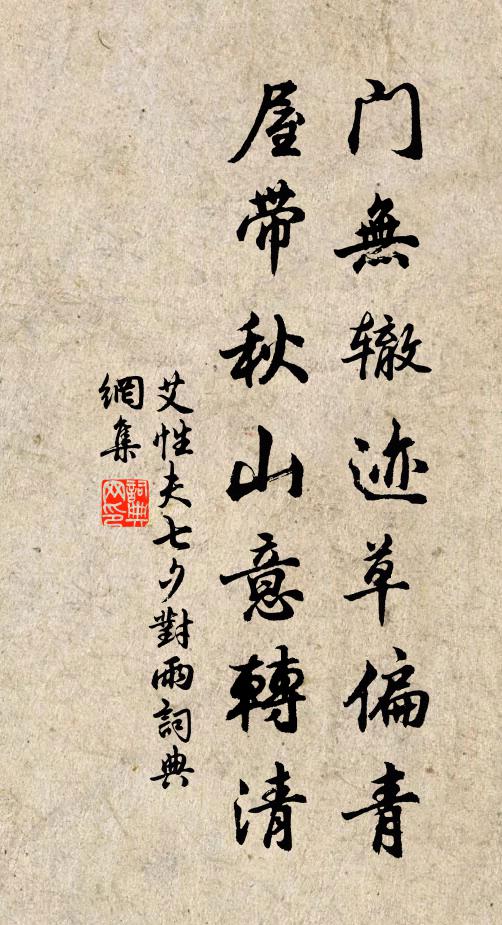 门無辙迹草偏青
屋带秋山意轉清
艾性夫七夕對雨詞典
網集
詞典
网印